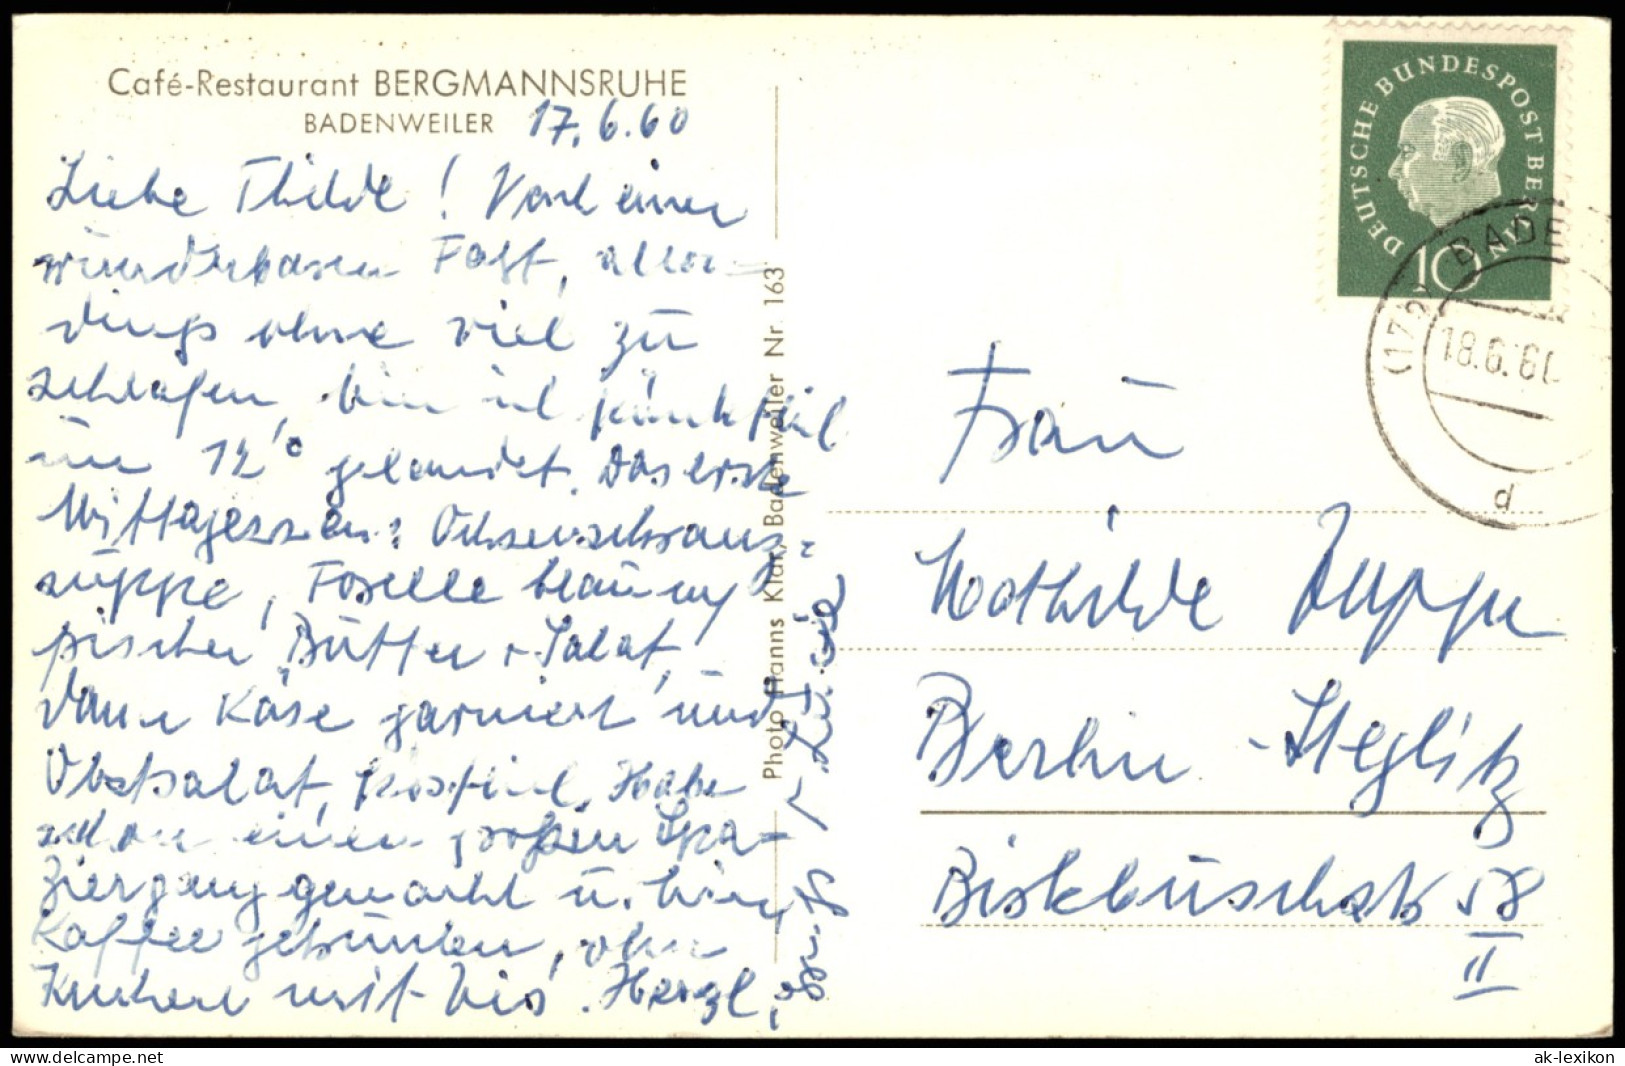 Café-Restaurant BERGMANNSRUHE
BADENWEILER 17.6.60
Liebe Thilde! Nach einer
wunderbaren Fahrt, aller-
dings ohne viel zu
schlafen, bin ich pünktlich
um 12° gelandet. Das erste
Mittagessen: Ochsenschwanz-
suppe, Forelle blau m.
frischer Butter + Salat,
dann Käse garniert und
Obstsalat, köstlich. Habe
schon einen großen Spa-
ziergang gemacht u. bin
Kaffee getrunken, ohne
Kuchen mit bis. Herzl.
Photo Hanns Klar, Badenweiler Nr. 163
DEUTSCHE BUNDESPOST BERLIN
10
BADE
(172)
18.6.60
d
Frau
Mathilde
Berlin-Steglitz
58
II
delcampe.net
ak-lexikon